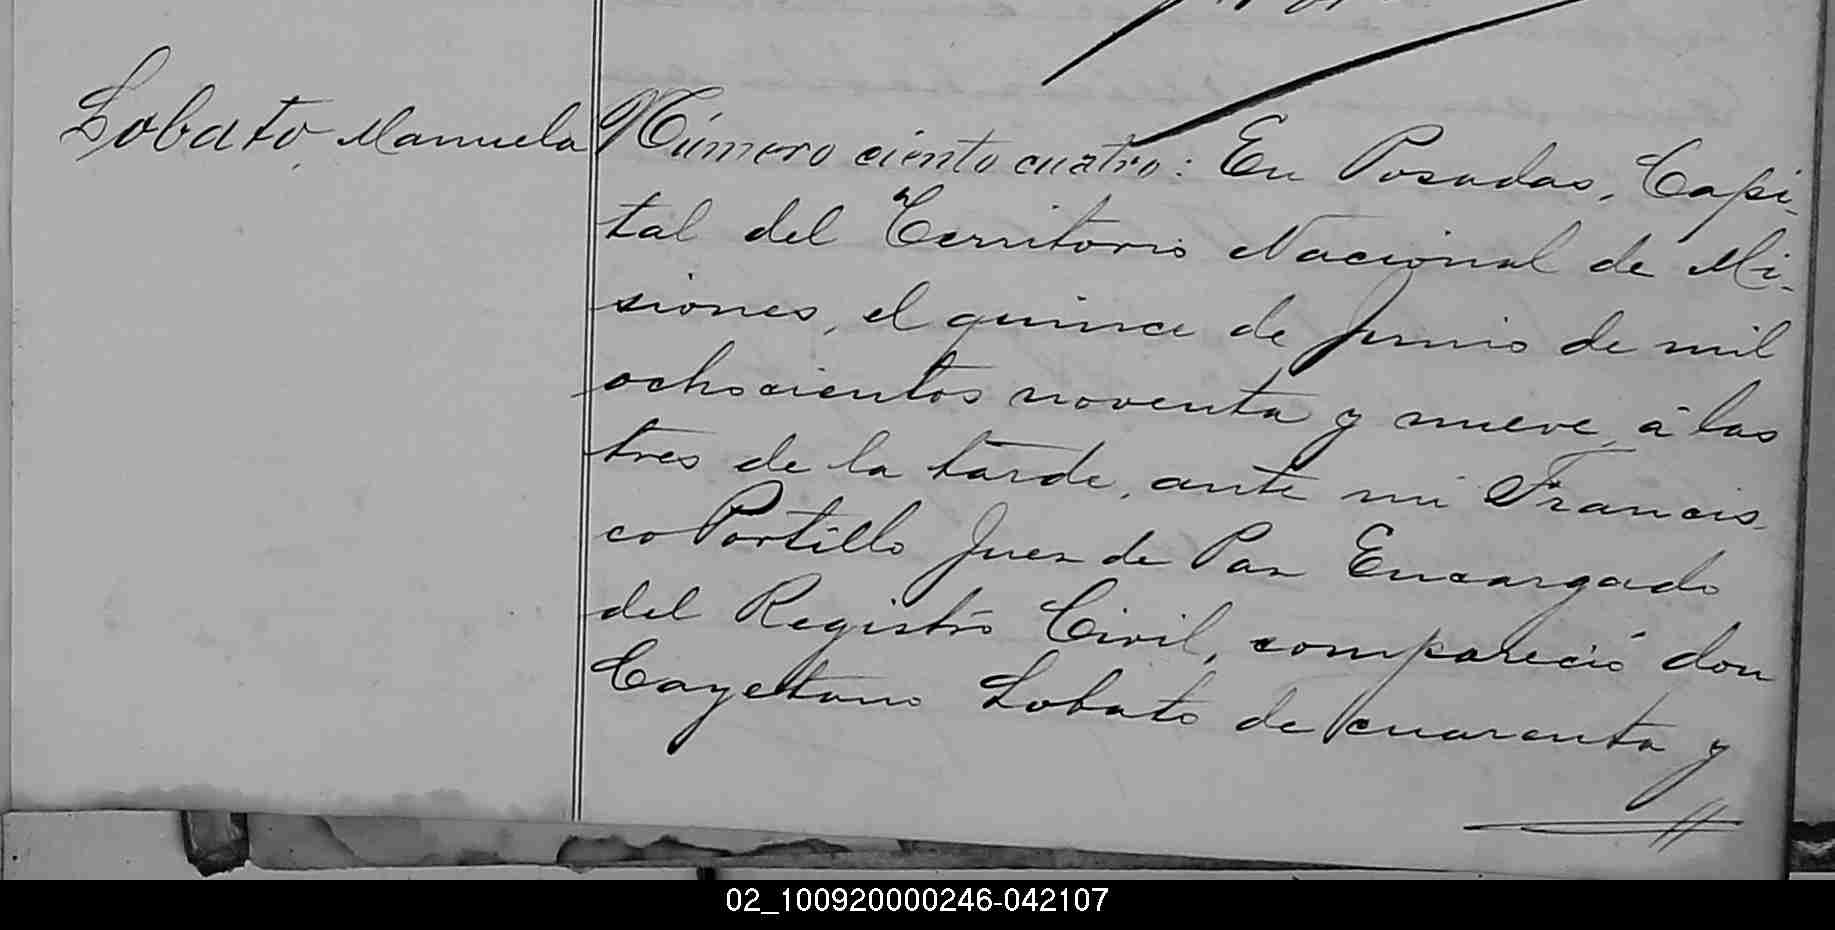 Lobato, Manuela
Número ciento cuatro: En Posadas, Capi-
tal del Territorio Nacional de Mi-
siones, el quince de Junio de mil
ochocientos noventa y nueve, á las
tres de la tarde, ante mi Francis-
co Portillo Juez de Paz Encargado
del Registro Civil, compareció don
Cayetano Lobato de cuarenta y
02_100920000246-042107